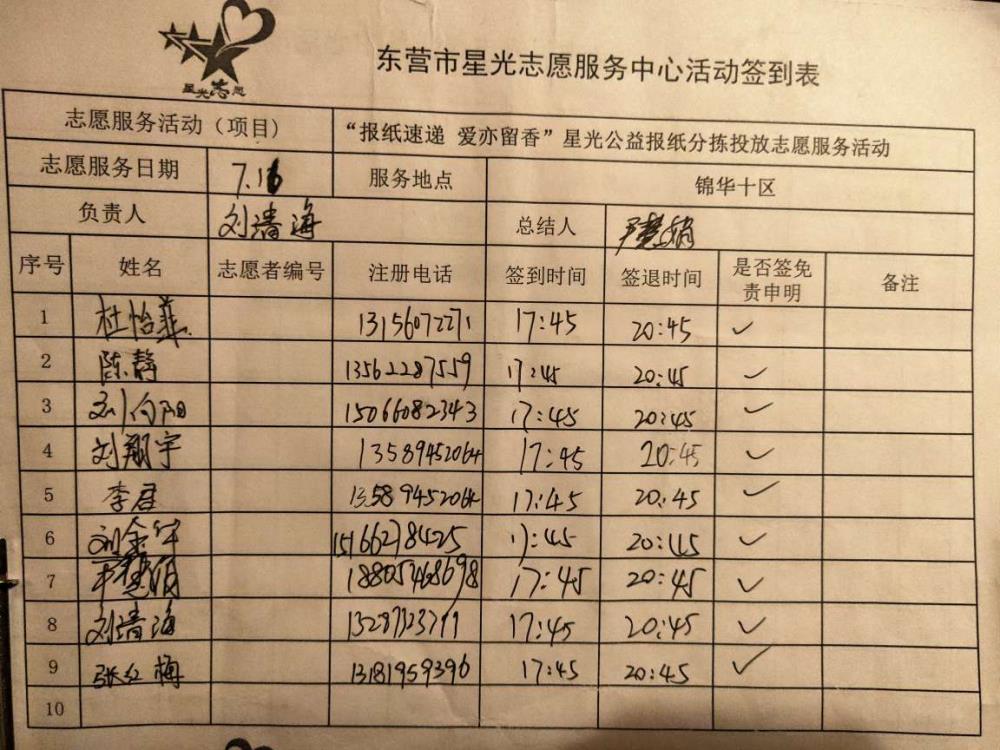 星光志愿
东营市星光志愿服务中心活动签到表
志愿服务活动（项目） “报纸速递 爱亦留香”星光公益报纸分拣投放志愿服务活动
志愿服务日期 7.16 服务地点 锦华十区
负责人 刘清海 总结人
序号 姓名 志愿者编号 注册电话 签到时间 签退时间 是否签免责申明 备注
1 杜怡 13156072271 17:45 20:45 ✓
2 陈静 13562287559 17:45 20:45 ✓
3 刘向阳 15066082343 17:45 20:45 ✓
4 刘翔宇 13589452064 17:45 20:45 ✓
5 李君 13589452064 17:45 20:45 ✓
6 刘金华 15166278425 17:45 20:45 ✓
7 18805468698 17:45 20:45 ✓
8 刘清海 17:45 20:45 ✓
9 张红梅 13181959396 17:45 20:45 ✓
10